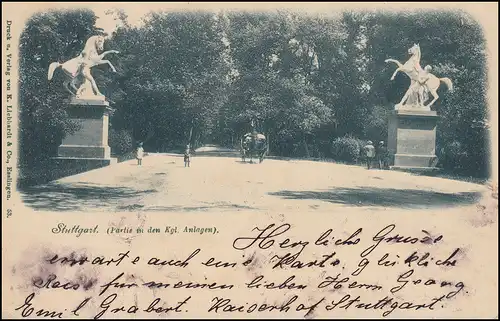 Druck u. Verlag von K. Liebhardt & Co., Esslingen. 53.
Stuttgart. (Partie in den Kgl. Anlagen).
Herzliche Grüsse
erwarte auch eine Karte, glückliche
Reise für meinen lieben Herrn Georg
Emil Grabert. Kaiserhof Stuttgart.